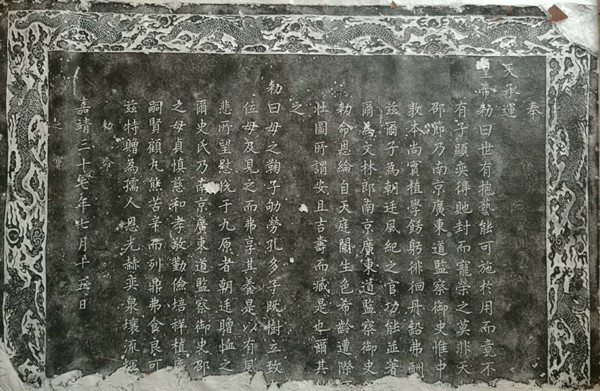 奉
天承運
皇帝勑曰世有抱藝能可施於用而竟不
有子顯奕得貤封而寵榮之莫非天
邵節乃南京廣東道監察御史惟中
敦本尚實植學錫躬徘徊丹鉛弗酬
兹爾子為朝廷風紀之官功能益著
爾為文林郎南京廣東道監察御史
勑命恩綸自天庭闈生色希齡遭際
壯圖所謂安且吉壽而臧是也爾其
之
勑曰母之鞠子劬勞孔多子既樹立故
位母及見之而弗享其養是以有同
悲所望慰恤于九原者朝廷贈恤之
爾史氏乃南京廣東道監察御史邵
之母貞慎慈和孝敬勤儉培祥植
嗣賢顧九熊苦辛而列鼎弗食良可
兹特贈為孺人恩光赫奕泉壤流
勑命
之寶
嘉靖三十 年七月 五日